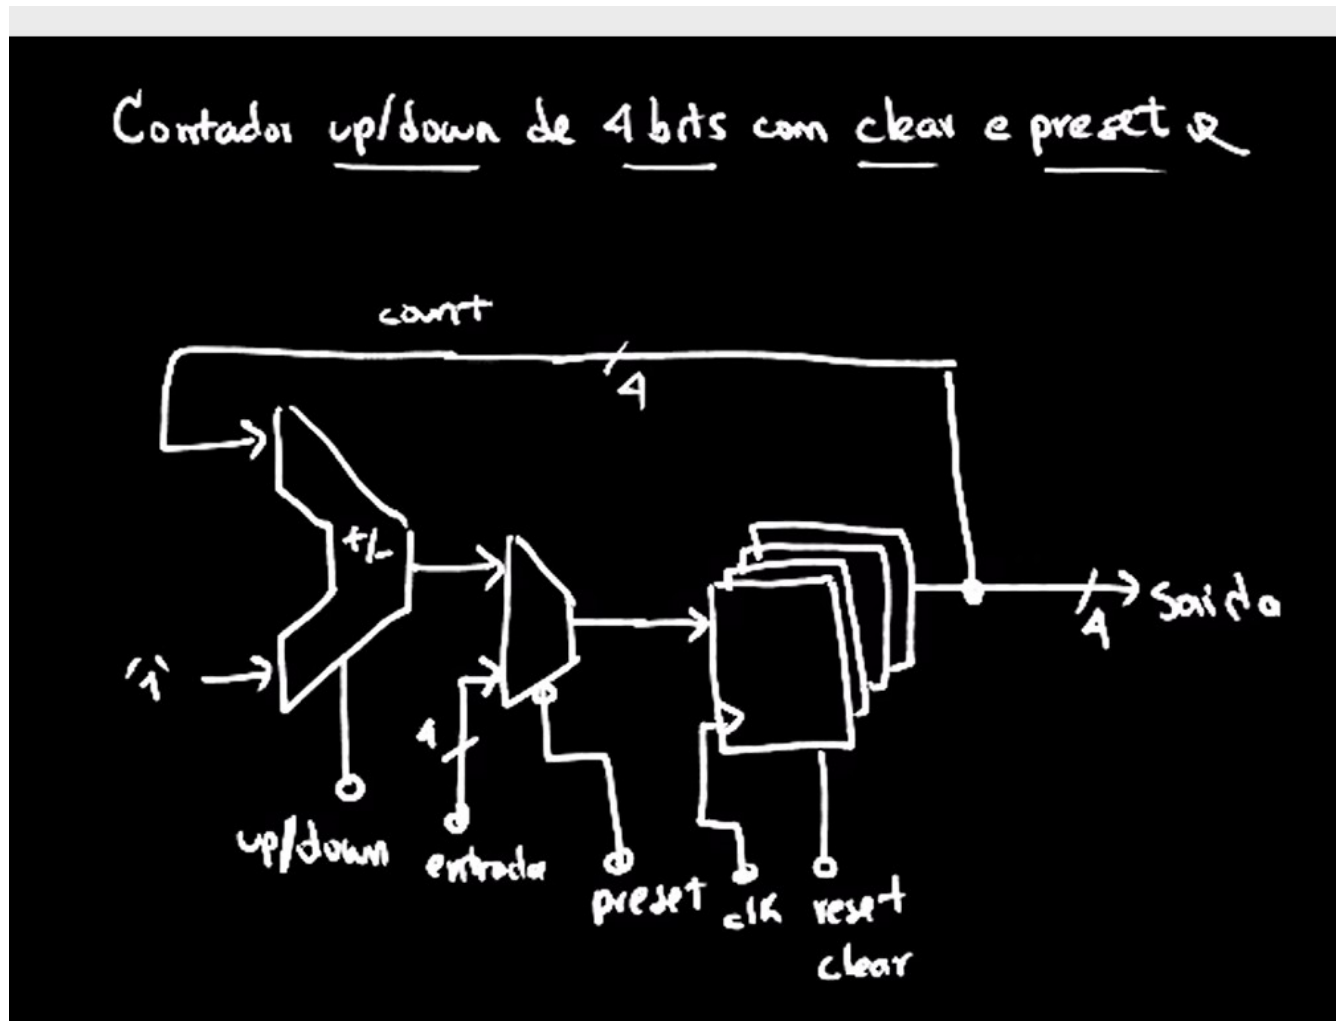 Contador up/down de 4 bits com clear e preset
count
4
+/-
'1'
4
Saída
4
up/down
entrada
preset
clk
reset
clear